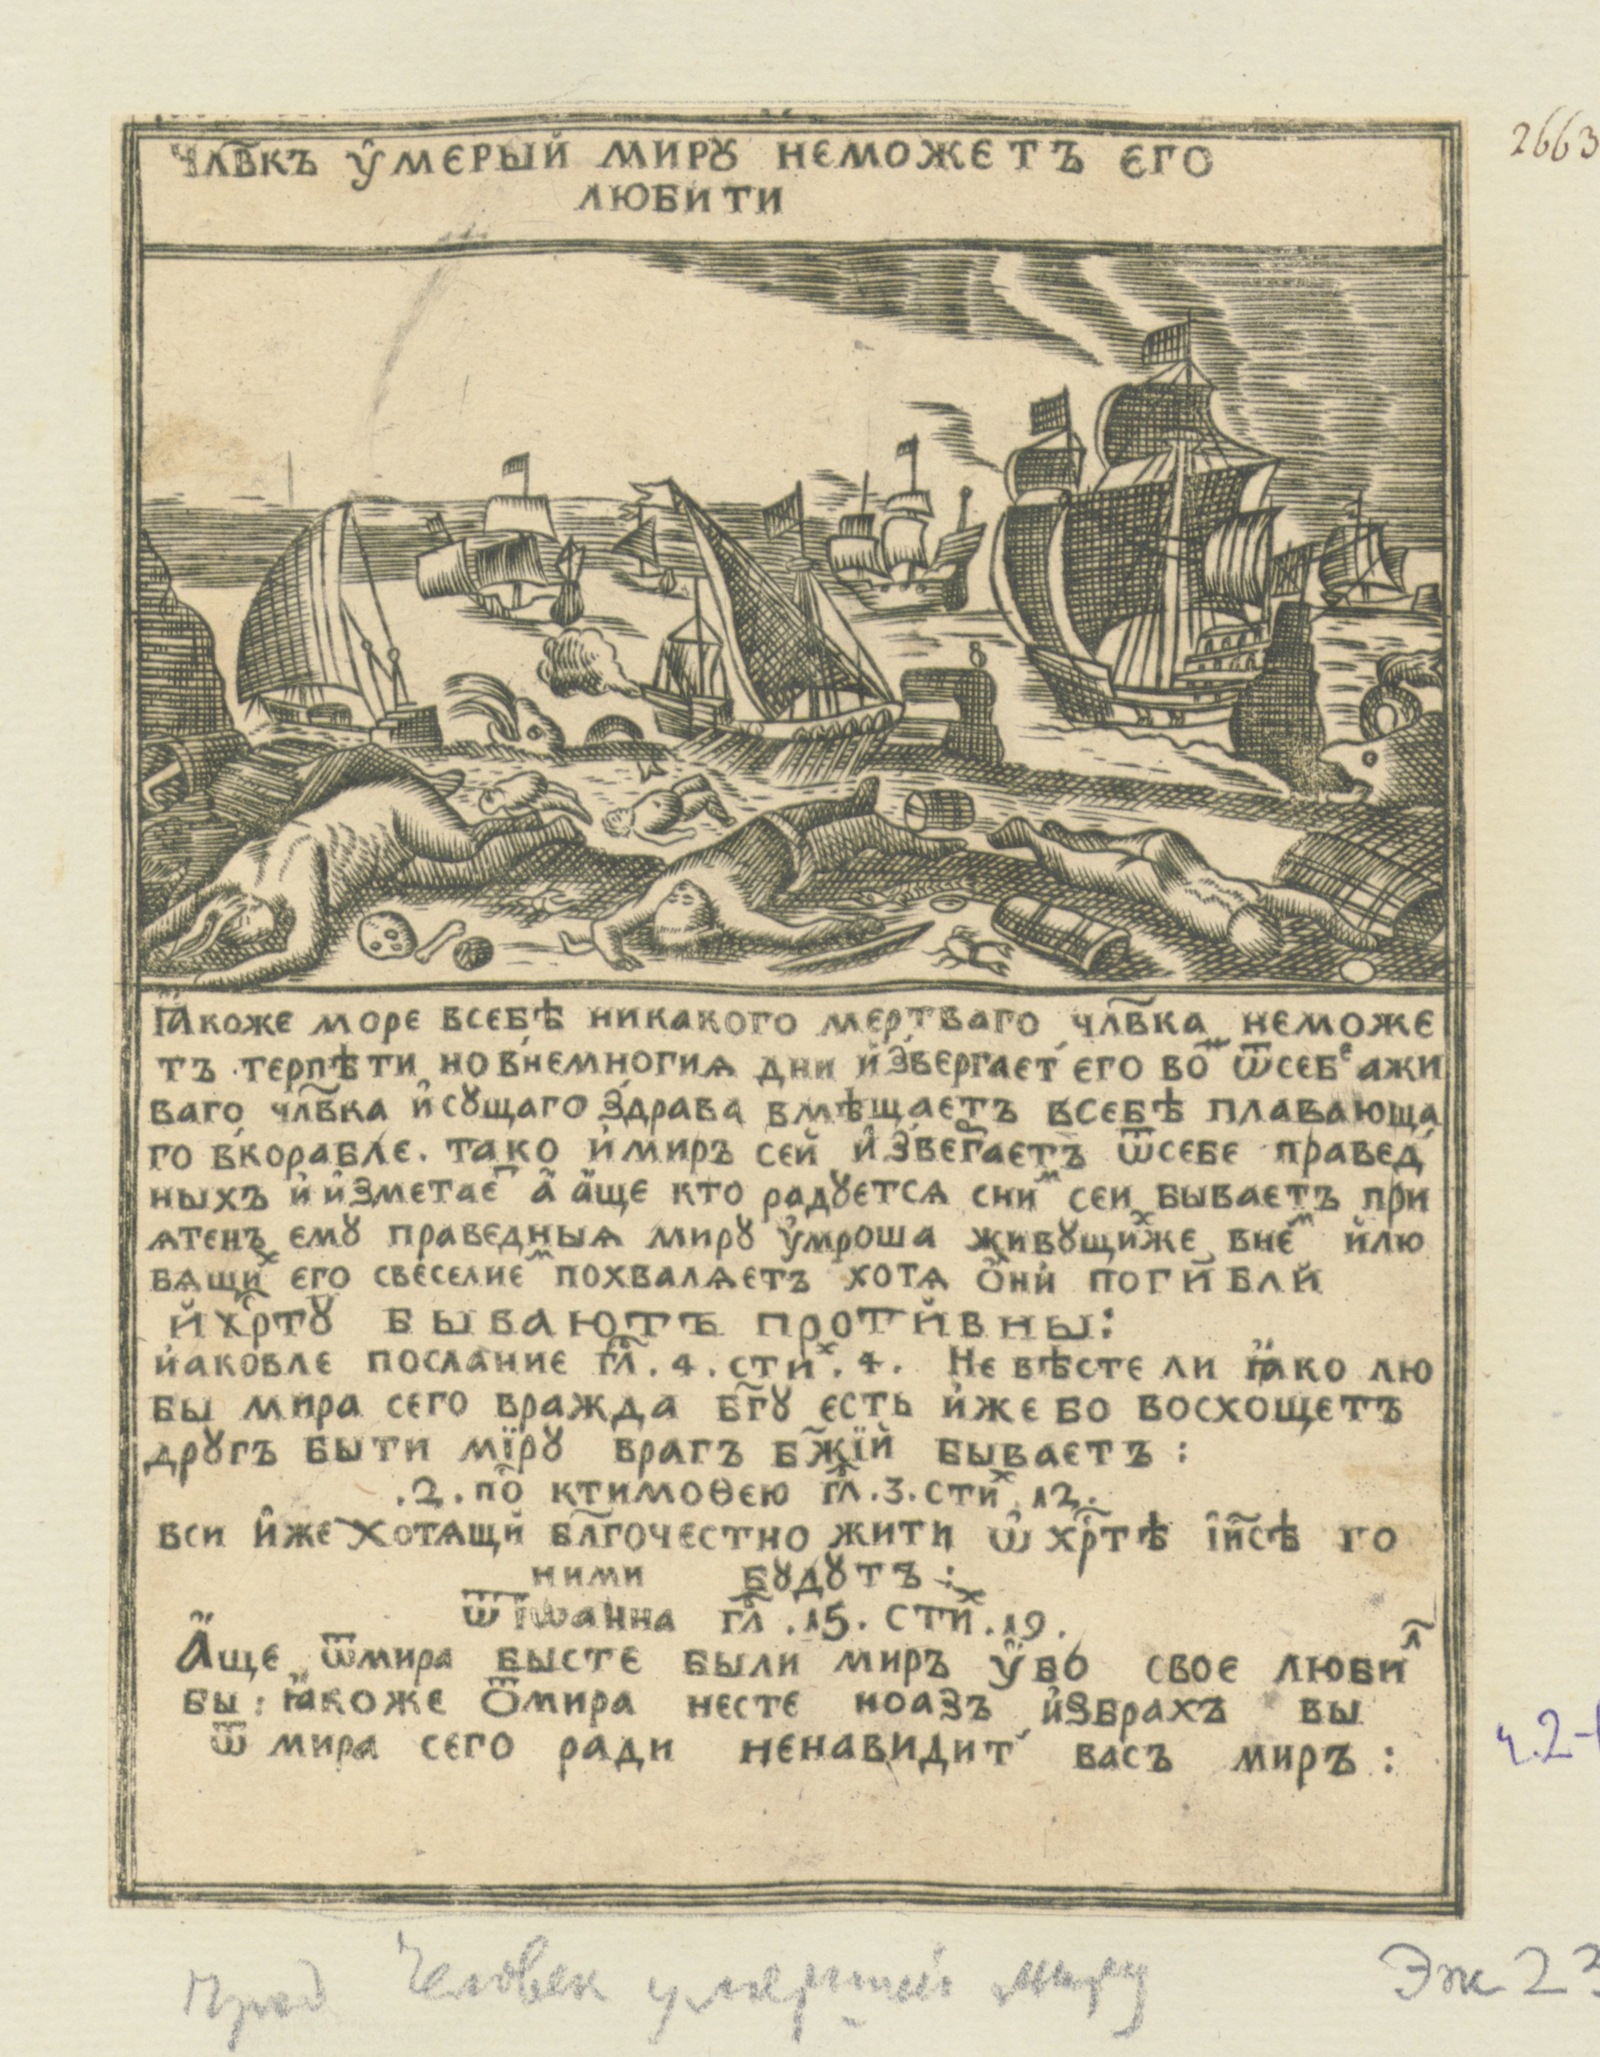 2663
члв҃къ ᲂу҆мерый мирꙋ неможетъ єго
любити
ꙗ҆коже море всебѣ никакого мертваго члв҃ка неможе
тъ терпѣти но внемногиѧ дни и҆звергаетъ єго во ѿсебе ажи
ваго члв҃ка и҆сꙋщаго здрава вмѣщаетъ всебѣ плавающа
го вкорабле. тако и҆миръ сей и҆звергаетъ ѿсебе правед
ныхъ и҆ и҆зметает а҆ а҆ще кто радꙋетсѧ сним сеи бываетъ при
ѧтенъ ємꙋ праведныѧ мирꙋ ᲂу҆мроша живꙋщихже внем и҆лю
бѧщих єго свеселием похвалѧетъ хотѧ ѻ҆ни погибли
и҆хрⷭ҇тꙋ бываютъ противны:
и҆аковле послание гл҃. 4. стих. 4. Не вѣсте ли ꙗ҆ко лю
бы мира сего вражда бг҃ꙋ єсть и҆же бо восхощетъ
дрꙋгъ быти мїрꙋ врагъ бж҃їй бываетъ:
.2. по ктимоѳею гл҃. 3. стих 12.
вси и҆же хотѧщи бл҃гочестно жити ѡ҆ хрⷭ҇тѣ і҆и҃сѣ го
ними бꙋдꙋтъ:
ѿ іѡанна гл҃ .15. стих .19.
А҆ще ѿмира бысте были миръ ᲂу҆бо свое любил
бы: ꙗ҆коже ѿмира несте ноазъ и҆збрахъ вы
ѿ мира сего ради ненавидит васъ миръ:
ч.2-
Человек умерший миру
Эк 23